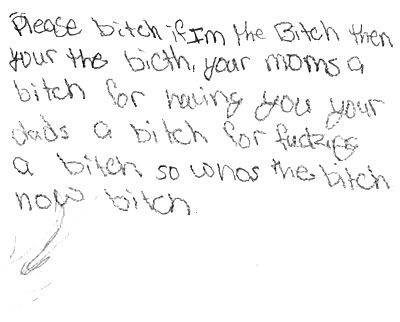 Please bitch if Im the Bitch then
your the bicth, your moms a
bitch for having you your
dads a bitch for fucking
a bitch so whos the bitch
now bitch